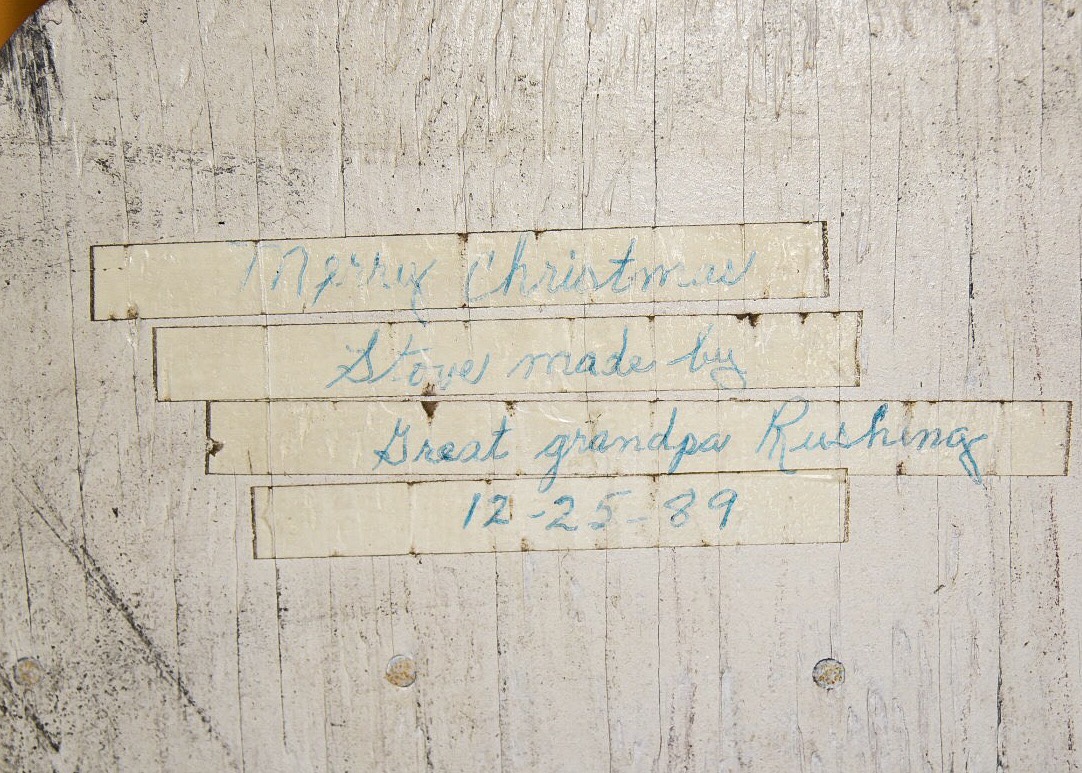 Merry Christmas
Stove made by
Great grandpa Rushing
12-25-89